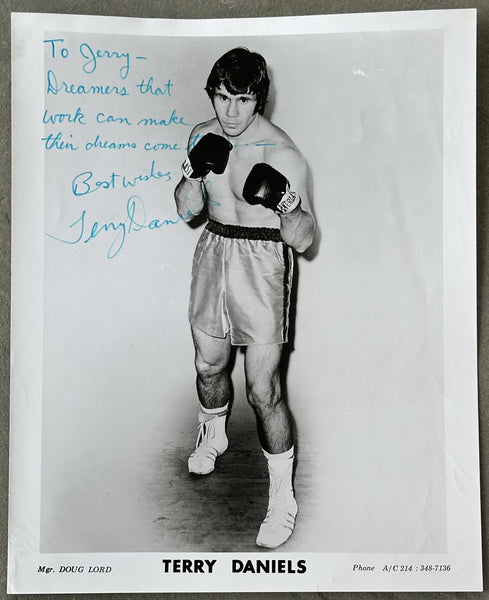 To Jerry—
Dreamers that
work can make
their dreams come
Best wishes
Terry Daniels
Mgr. DOUG LORD
TERRY DANIELS
Phone A/C 214 : 348-7136